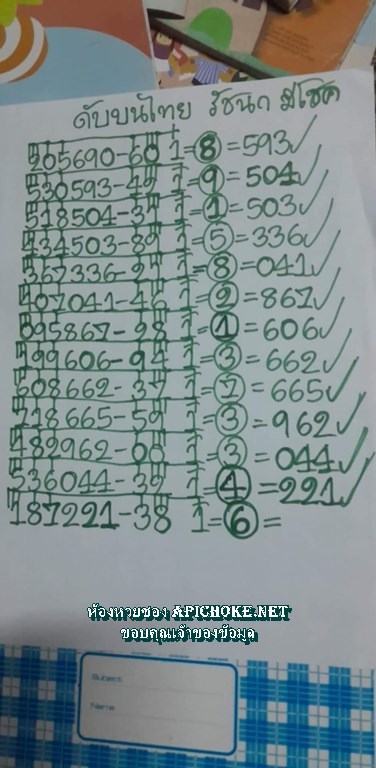 ดับบนไทย รัชนก มีโชค
205690-60 1=8=593✓
530593-49 1=9=504✓
518504-37 1=1=503✓
434503-89 1=5=336✓
367336-97 1=8=041✓
407041-46 1=2=867✓
095867-98 1=1=606✓
499606-94 1=3=662✓
608662-37 1=7=665✓
718665-59 1=3=962✓
482962-06 1=3=044✓
536044-39 1=4=221✓
187221-38 1=6=
ห้องหวยซอง APICHOKE.NET
ขอบคุณเจ้าของข้อมูล
Subject
Name